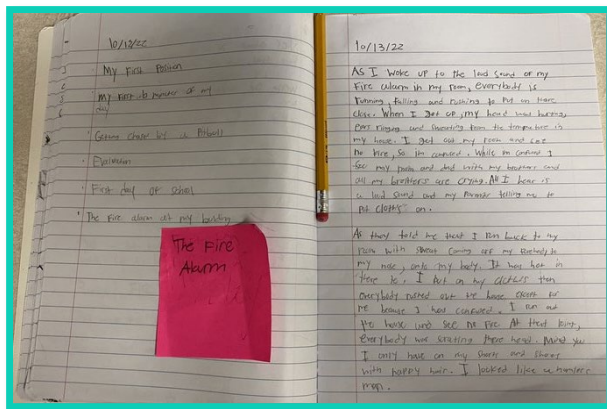 10/12/22
My First Position
My First 10 minutes of my
day
Getting chase by a Pitbull
Evaluation
First day of school
The Fire alarm at my building
The Fire
Alarm
10/13/22
As I woke up to the loud sound of my
Fire alarm in my room, everybody is
running, falling and rushing to Put on there
close. When I got up, my head was hurting,
ears ringing and sweating from the temperature in
my house. I got out my room and see
no fire, so im confused. While im confused I
see my mom and dad with my brothers and
all my brothers are crying. All I hear is
a loud sound and my Parents telling me to
Put cloths on.
As they told me that I Run back to my
room with sweat coming off my forehead to
my nose, onto my body. It was hot in
there to. I Put on my clothes then
everybody rushed out the house except for
me because I was confused. I run out
the house and see no fire. At that time,
everybody was scrating there head. Mind you
I only have on my shorts and shoes
with nappy hair. I looked like a homeless
man.